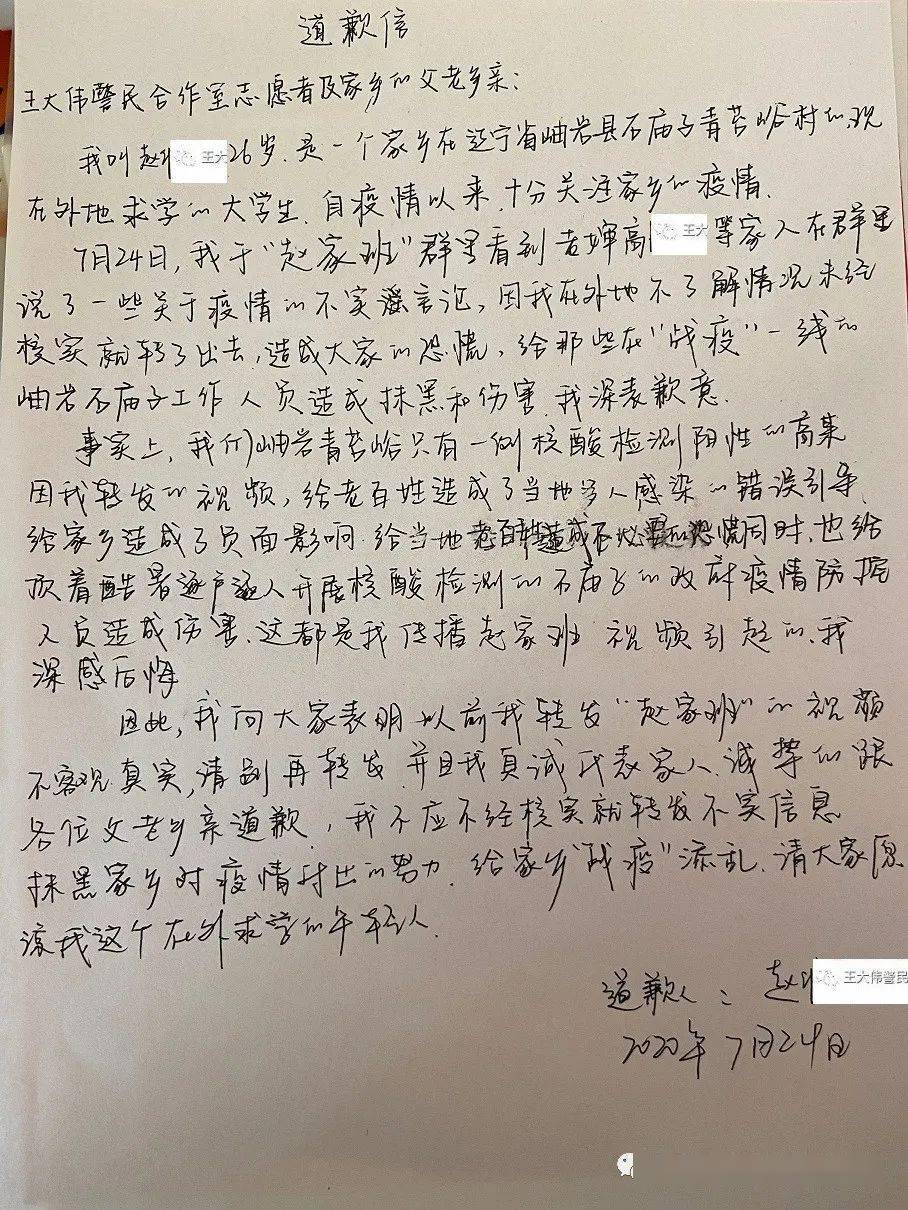 道歉信
王大伟警民合作室志愿者及家乡的父老乡亲：
我叫赵 王大 26岁.是一个家乡在辽宁省岫岩县石庙子青苔峪村的,现
在外地求学的大学生.自疫情以来,十分关注家乡的疫情.
7月24日,我于“赵家班”群里看到老婶高 王大 等家人在群里
说了一些关于疫情的不实谣言论,因我在外地不了解情况未经
核实就转了出去,造成大家的恐慌,给那些在“战疫”一线的
岫岩石庙子工作人员造成抹黑和伤害.我深表歉意.
事实上,我们岫岩青苔峪只有一例核酸检测阳性的高某
因我转发的视频,给老百姓造成了当地多人感染的错误引导,
给家乡造成了负面影响.给当地老百姓造成不必要的恐慌同时,也给
顶着酷暑逐户逐人开展核酸检测的石庙子的政府疫情防控
人员造成伤害.这都是我传播赵家班 视频引起的.我
深感后悔
因此,我向大家表明以前我转发“赵家班”的视频
不客观真实,请别再转发.并且我真诚代表家人.诚挚的跟
各位父老乡亲道歉,我不应不经核实就转发不实信息
抹黑家乡对疫情付出的努力.给家乡“战疫”添乱.请大家原
谅我这个在外求学的年轻人.
道歉人: 赵 王大伟警民
2020年7月24日